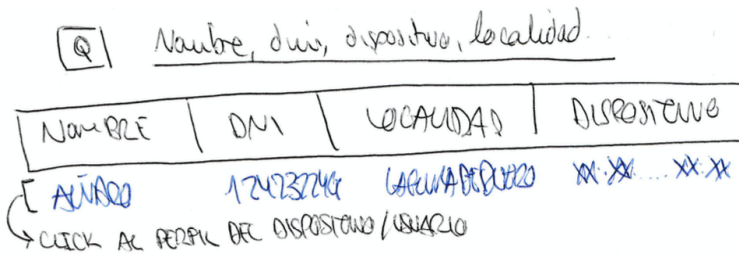 Q Nombre, dni, dispositivo, localidad...
NOMBRE DNI LOCALIDAD DISPOSITIVO
LAGUNA DE DUERO XX:XX....XX:XX
CLICK AL PERFIL DEL DISPOSITIVO/USUARIO